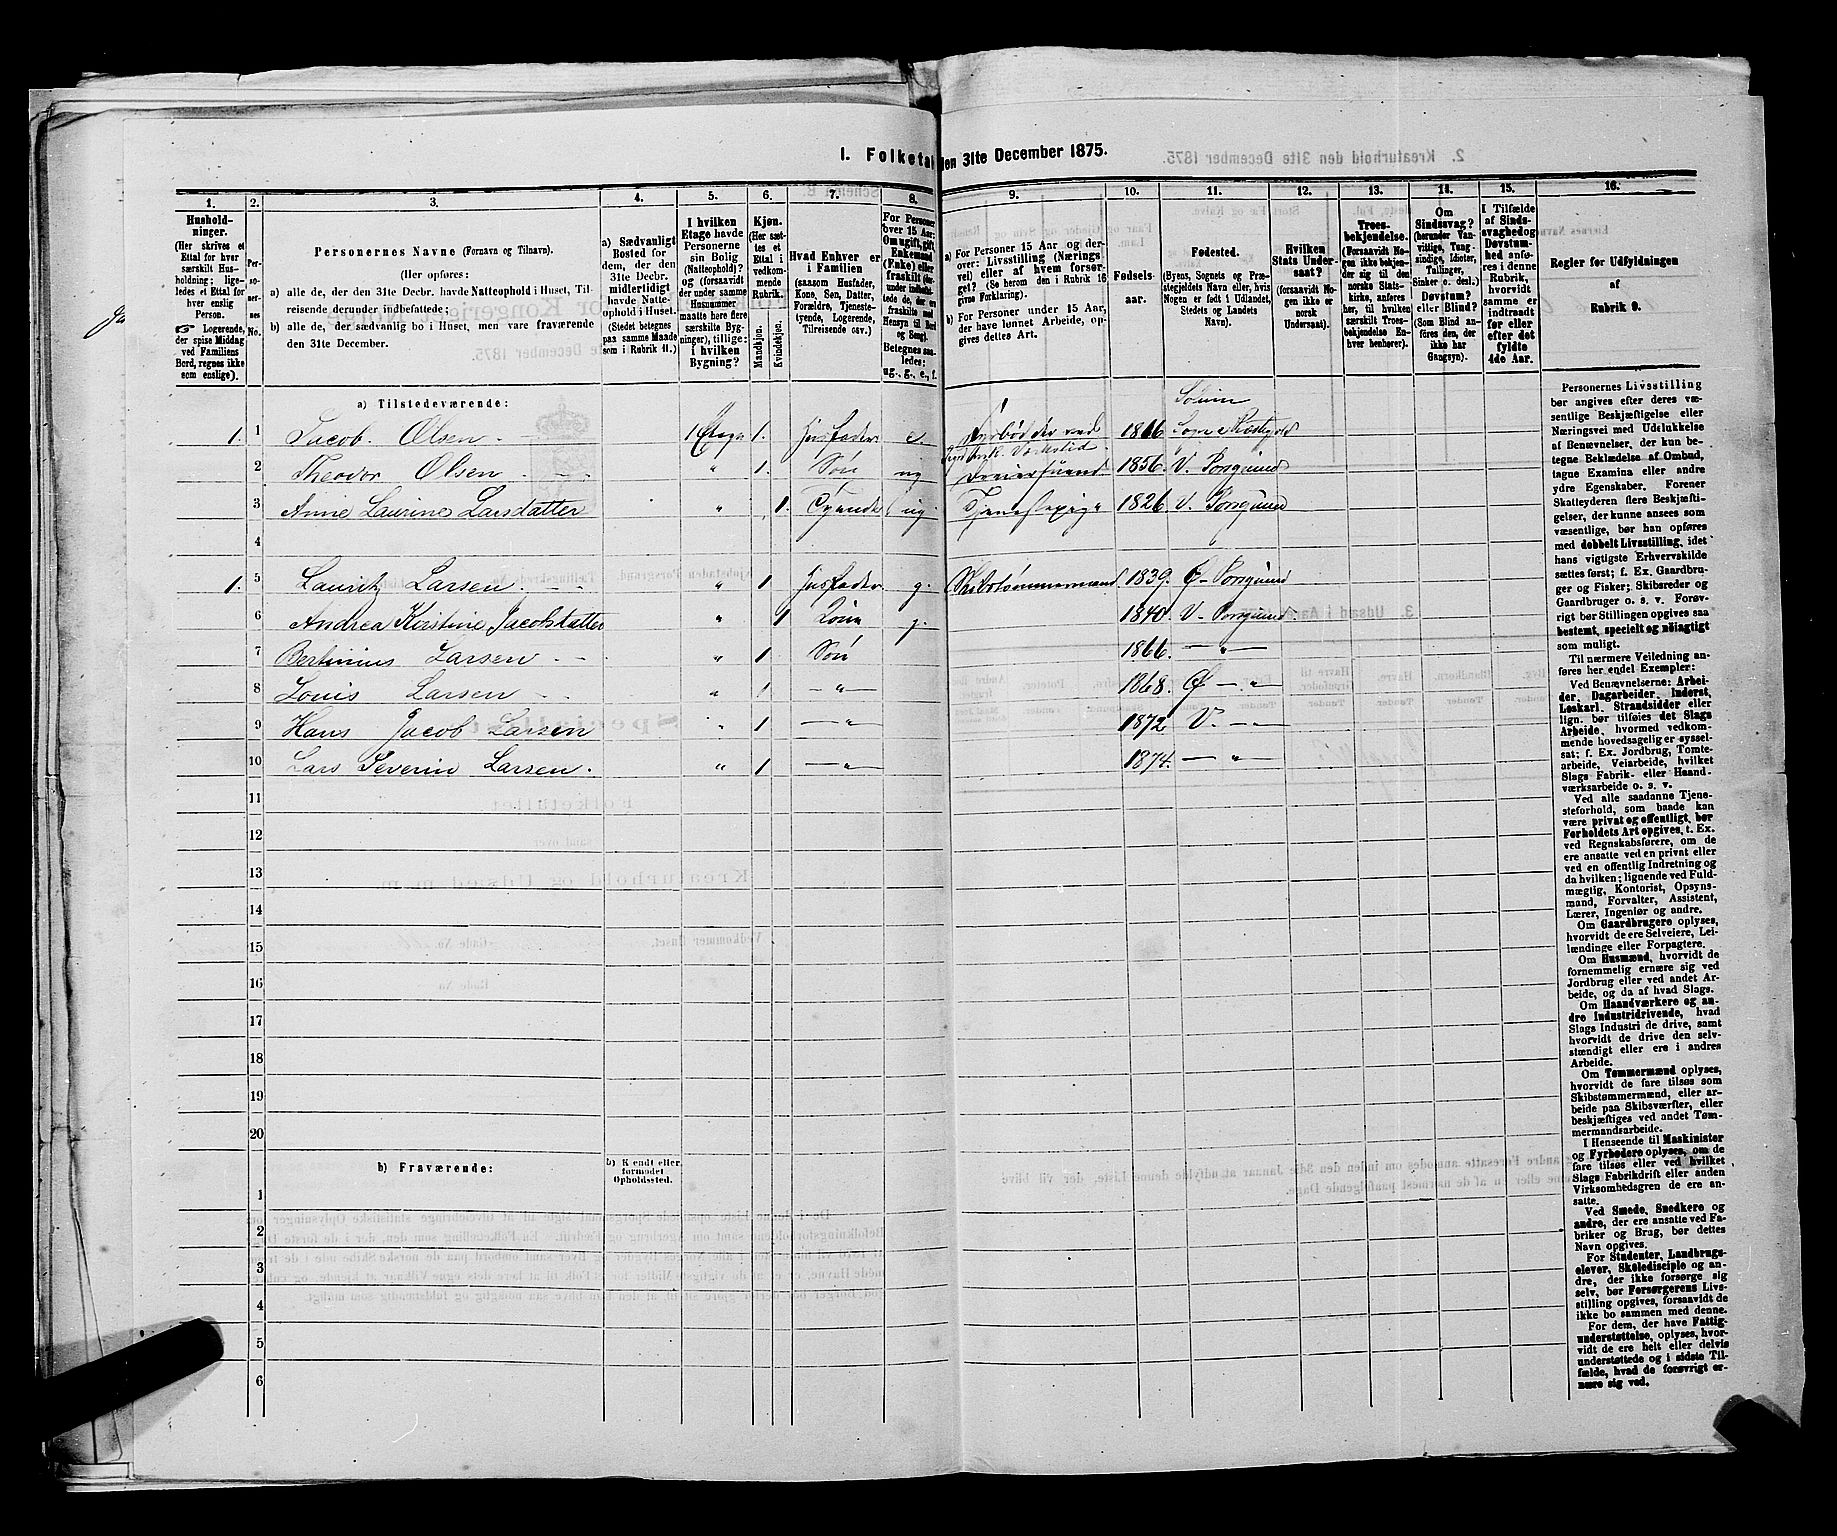 1. Folketal den 31te December 1875.
1. 2. 3. 4. 5. 6. 7. 8. 9. 10. 11. 12. 13. 14. 15. 16.
Hushold-
ninger.
(Her skrives et
Ettal for hver
særskilt Hus-
holdning; lige-
ledes et Ettal for
hver enslig
Person.
Logerende,
der spise Middag
ved Familiens
Bord, regnes ikke
som enslige).
Per-
so-
ner-
nes
No.
Personernes Navne (Fornavn og Tilnavn).
(Her opføres:
a) alle de, der den 31te Decbr. havde Natteophold i Huset, Til-
reisende derunder indbefattede;
b) alle de, der sædvanlig bo i Huset, men vare fraværende
den 31te December.
a) Sædvanligt
Bosted for
dem, der den
31te Decbr.
midlertidigt
havde Natte-
ophold i Huset.
(Stedet betegnes
paa samme Maade
som i Rubrik 11.)
I hvilken
Etage havde
Personerne
sin Bolig
(Natteophold)?
(forsaavidt
der under samme
Husnummer
maatte høre flere
særskilte Byg-
ninger), tillige:
i hvilken
Bygning?
Kjøn.
(Her sæt-
tes et
Ettal i
vedkom-
mende
Rubrik.
Mandkjøn.
Kvindekjøn.
Hvad Enhver er
i Familien
(saasom Husfader,
Kone, Søn, Datter,
Forældre, Tjeneste-
tyende, Logerende,
Tilreisende osv.)
For Personer
over 15 Aar:
Om ugift, gift,
Enkemand
(Enke) eller
fraskilt
Betegnes saa-
ledes:
ug., g., e., f.
a) For Personer 15 Aar og der-
over: Livsstilling (Nærings
vei) eller af hvem forsør-
get? (Se herom den i Rubrik 16
givne Forklaring).
b) For Personer under 15 Aar,
der have lønnet Arbeide, op-
gives dettes Art.
Fødsels-
aar.
Fødested.
(Byens, Sognets og Præ-
stegjeldets Navn eller, hvis
Nogen er født i Udlandet,
Stedets og Landets
Navn).
Hvilken
Stats Under-
saat?
(forsaavidt No-
gen ikke er
norsk
Undersaat).
Troes-
bekjendelse.
(Forsaavidt No-
gen ikke bekjen-
der sig til den
norske Stats-
kirke, anføres
her, til hvilken
særskilt Troes-
bekjendelse En-
hver henhører).
Om
Sindssvag?
(herunder Van-
vittige, Tung-
sindige, Idioter,
Tullinger,
Sinker o. desl.)
Døvstum?
eller Blind?
(Som Blind an-
føres den, der
ikke har
Gangsyn).
I Tilfælde
af Sinds-
svaghed og
Døvstum-
hed anfø-
res i denne
Rubrik,
hvorvidt
samme er
indtraadt
før eller
efter det
fyldte
4de Aar.
Regler for Udfyldningen
af
Rubrik 9.
a) Tilstedeværende:
1. 1 Jacob. Olsen 1 Etage 1. Husfader e. 1816
2 Theodor Olsen " 1. Søn ug 1856. V. Porsgrund
3 Anne Laurine Larsdatter " 1. Tyende ug. Tjenestepige 1826. V. Porsgrund
4
1. 5 Lauritz Larsen " 1 Husfader g. Skibstømmermand 1839. Ø- Porsgrund
6 Andrea Kirstine Jacobsdatter " 1 Kone g. 1840. V- Porsgrund.
7 Bertinius Larsen " 1. Søn 1866. — " —
8 Louis Larsen " 1 — " — 1868. Ø — " —
9 Hans Jacob Larsen " 1 — " — 1872 V. — " —
10 Lars Severin Larsen. " 1 — " — 1874. — " —
11
12
13
14
15
16
17
18
19
20
b) Fraværende: b) Kjendt eller
formodet
Opholdssted.
1
2
3
4
5
6
Personernes Livsstilling
bør angives efter deres væ-
sentlige Beskjæftigelse eller
Næringsvei med Udelukkelse
af Benævnelser, der kun be-
tegne Beklædelse af Ombud,
tagne Examina eller andre
ydre Egenskaber. Forener
Skatteyderen flere Beskjæfti-
gelser, der kunne ansees som
væsentlige, bør han opføres
med dobbelt Livsstilling, idet
hans vigtigste Erhvervskilde
sættes først; f. Ex. Gaardbru-
ger og Fisker; Skibsreder og
Gaardbruger o. s. v. Forøv-
rigt bør Stillingen opgives saa
bestemt, specielt og nøiagtigt
som muligt.
Til nærmere Veiledning an-
føres her endel Exempler:
Ved Benævnelserne: Arbei-
der, Dagarbeider, Inderst,
Løskarl, Strandsidder eller
lign. bør tilføies det Slags
Arbeide, hvormed vedkom-
mende hovedsagelig er syssel-
sat; f. Ex. Jordbrug, Tomte-
arbeide, Veiarbeide, hvilket
Slags Fabrik- eller Haand-
værksarbeide o. s. v.
Ved alle saadanne Tjene-
steforhold, som baade kan
være privat og offentligt, bør
Forholdets Art opgives, t. Ex.
ved Regnskabsførere, om de
ere ansatte ved en privat eller
ved en offentlig Indretning og
da hvilken; lignende ved Fuld-
mægtig, Kontorist, Opsyns-
mand, Forvalter, Assistent,
Lærer, Ingeniør og andre.
Om Gaardbrugere oplyses,
hvorvidt de ere Selveiere, Lei-
lændinge eller Forpagtere.
Om Husmænd, hvorvidt de
fornemmelig ernære sig ved
Jordbrug eller ved andet Ar-
beide, og da af hvad Slags.
Om Haandværkere og an-
dre Industridrivende, hvad
Slags Industri de drive, samt
hvorvidt de drive den selv-
stændigt eller ere i andres
Arbeide.
Om Tømmermænd oplyses,
hvorvidt de fare tilsøs som
Skibstømmermænd, eller ar-
beide paa Skibsværfter, eller
beskjæftiges ved andet Tøm-
mermandsarbeide.
I Henseende til Maskinister
og Fyrbødere oplyses, om de
fare tilsøs eller ved hvilket
Slags Fabrikdrift eller anden
Virksomhedsgren de ere an-
satte.
Ved Smede, Snedkere og
andre, der ere ansatte ved Fa-
briker og Brug, bør dettes
Navn opgives.
For Studenter, Landbrugs-
elever, Skoledisciple og an-
dre, der ikke forsørge sig
selv, bør Forsørgerens Livs-
stilling opgives, forsaavidt de
ikke bo sammen med denne.
For dem, der have Fattig-
understøttelse, oplyses, hvor-
vidt de ere helt eller delvis
understøttede og i sidste Til-
fælde, hvad de forøvrigt er-
nære sig ved.